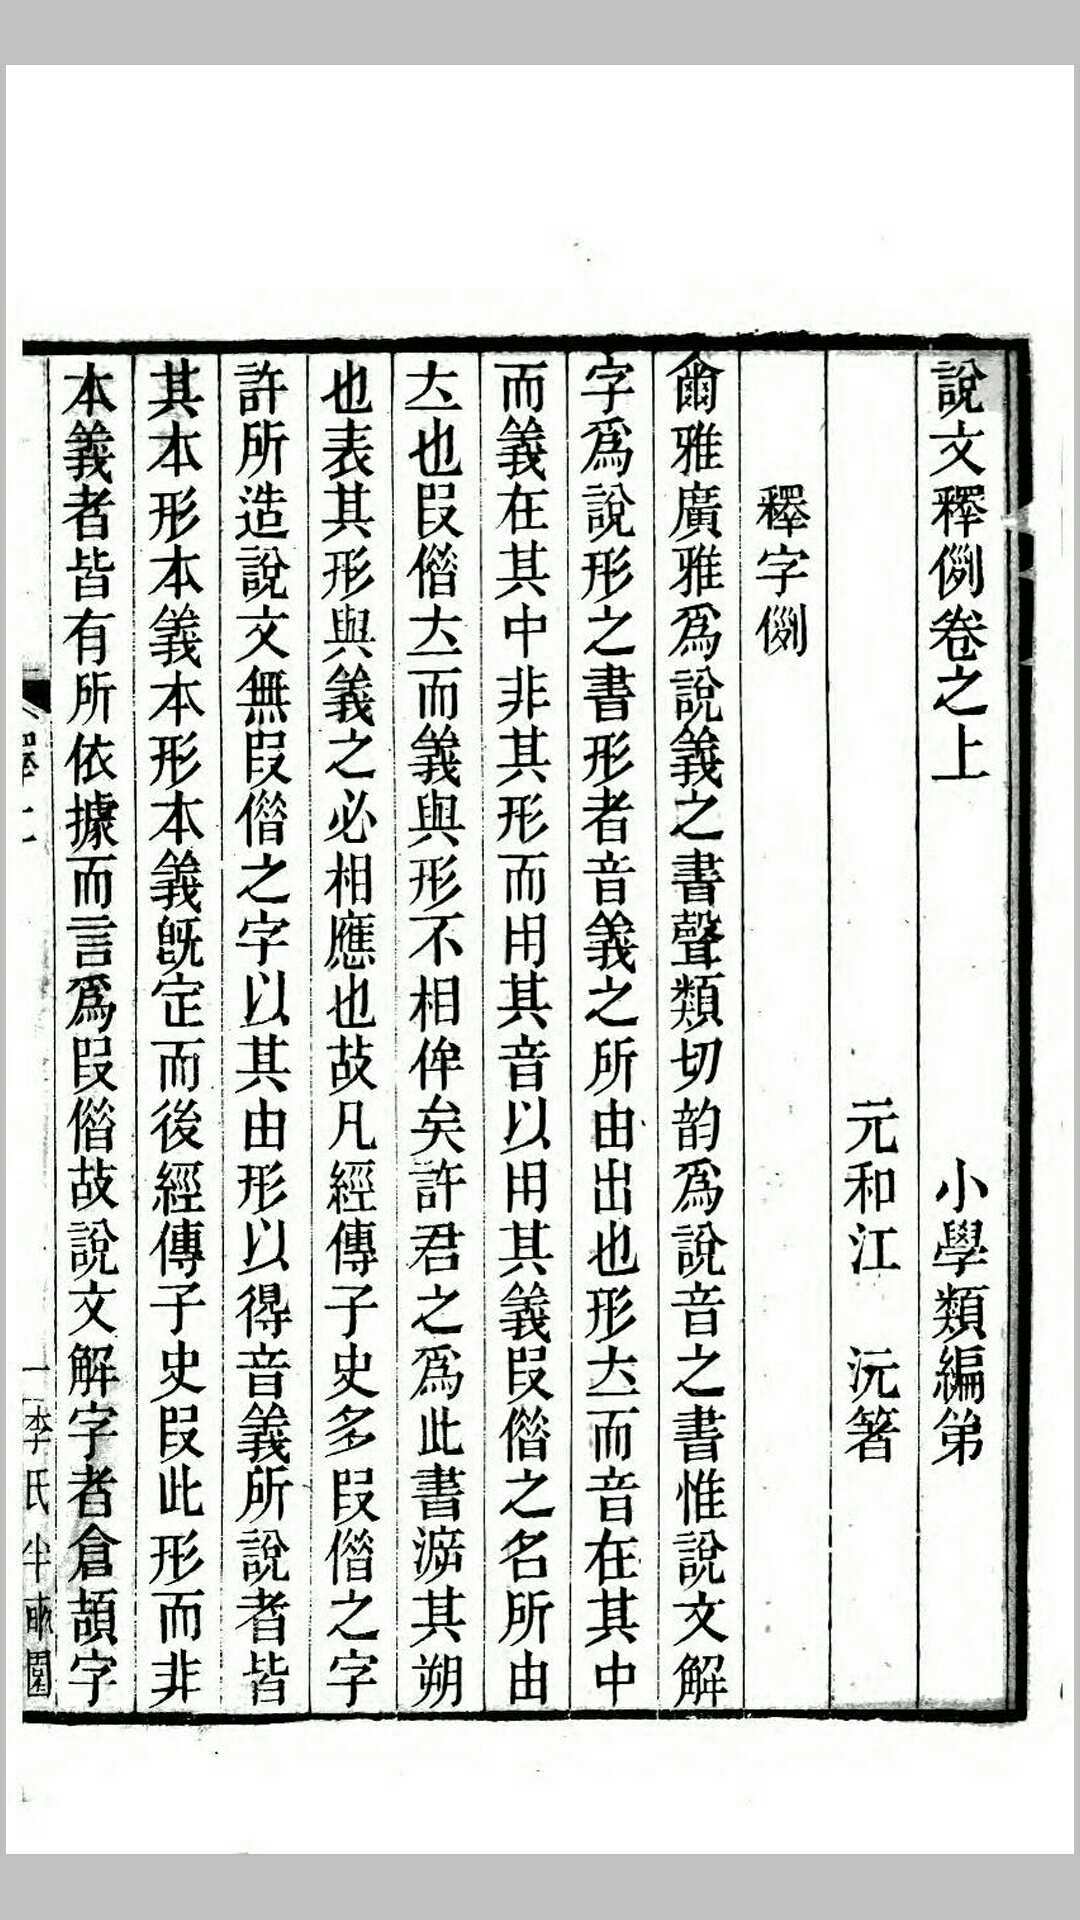 說文釋例卷之上　小學類編弟
元和江　沅箸
釋字例
爾雅廣雅爲說義之書聲類切韵爲說音之書惟說文解
字爲說形之書形者音義之所由出也形𠀑而音在其中
而義在其中非其形而用其音以用其義叚借之名所由
𠀑也叚借𠀑而義與形不相侔矣許君之爲此書泝其朔
也表其形與義之必相應也故凡經傳子史多叚借之字
許所造說文無叚借之字以其由形以得音義所說者皆
其本形本義本形本義旣定而後經傳子史叚此形而非
本義者皆有所依據而言爲叚借故說文解字者倉頡字
一　李氏半畝園